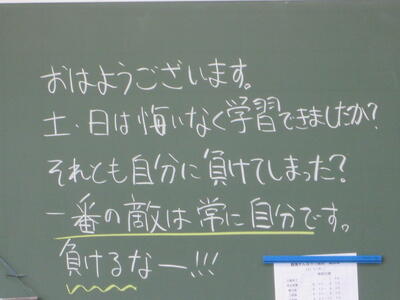 おはようございます。
土・日は悔いなく学習できましたか?
それとも自分に負けてしまった?
一番の敵は常に自分です。
負けるなー!!!